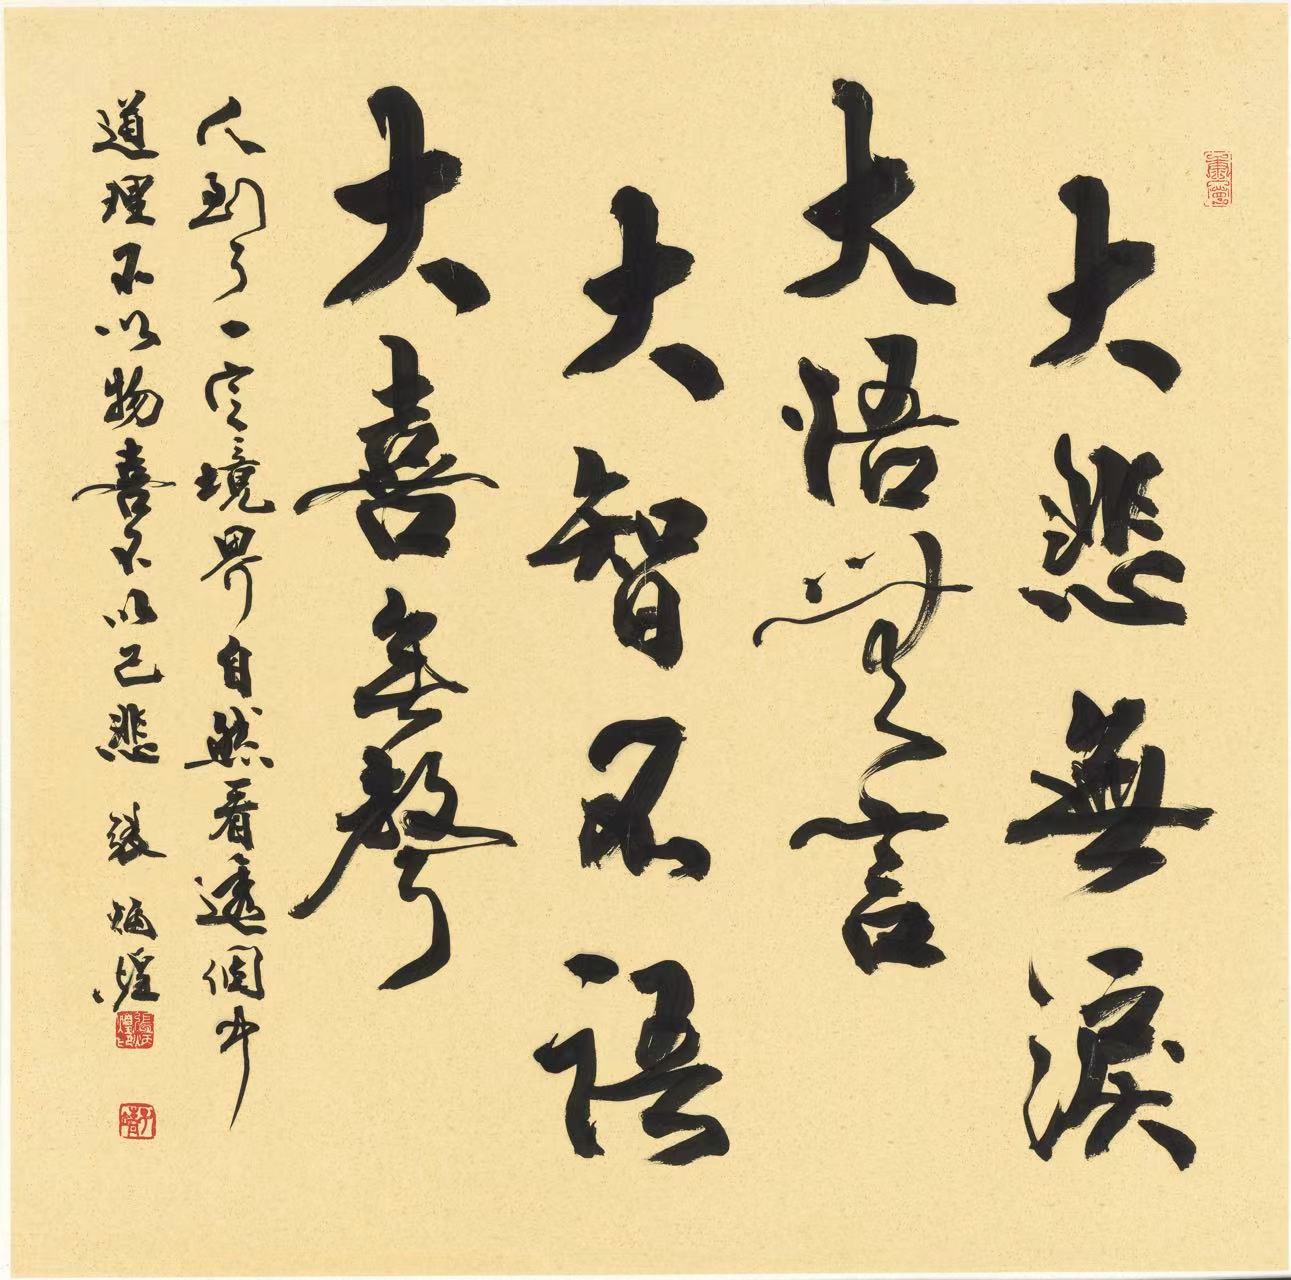 大悲無淚
大悟無言
大智不語
大喜無聲
人到了一定境界自然看透個中
道理不以物喜不以己悲 張炳煌